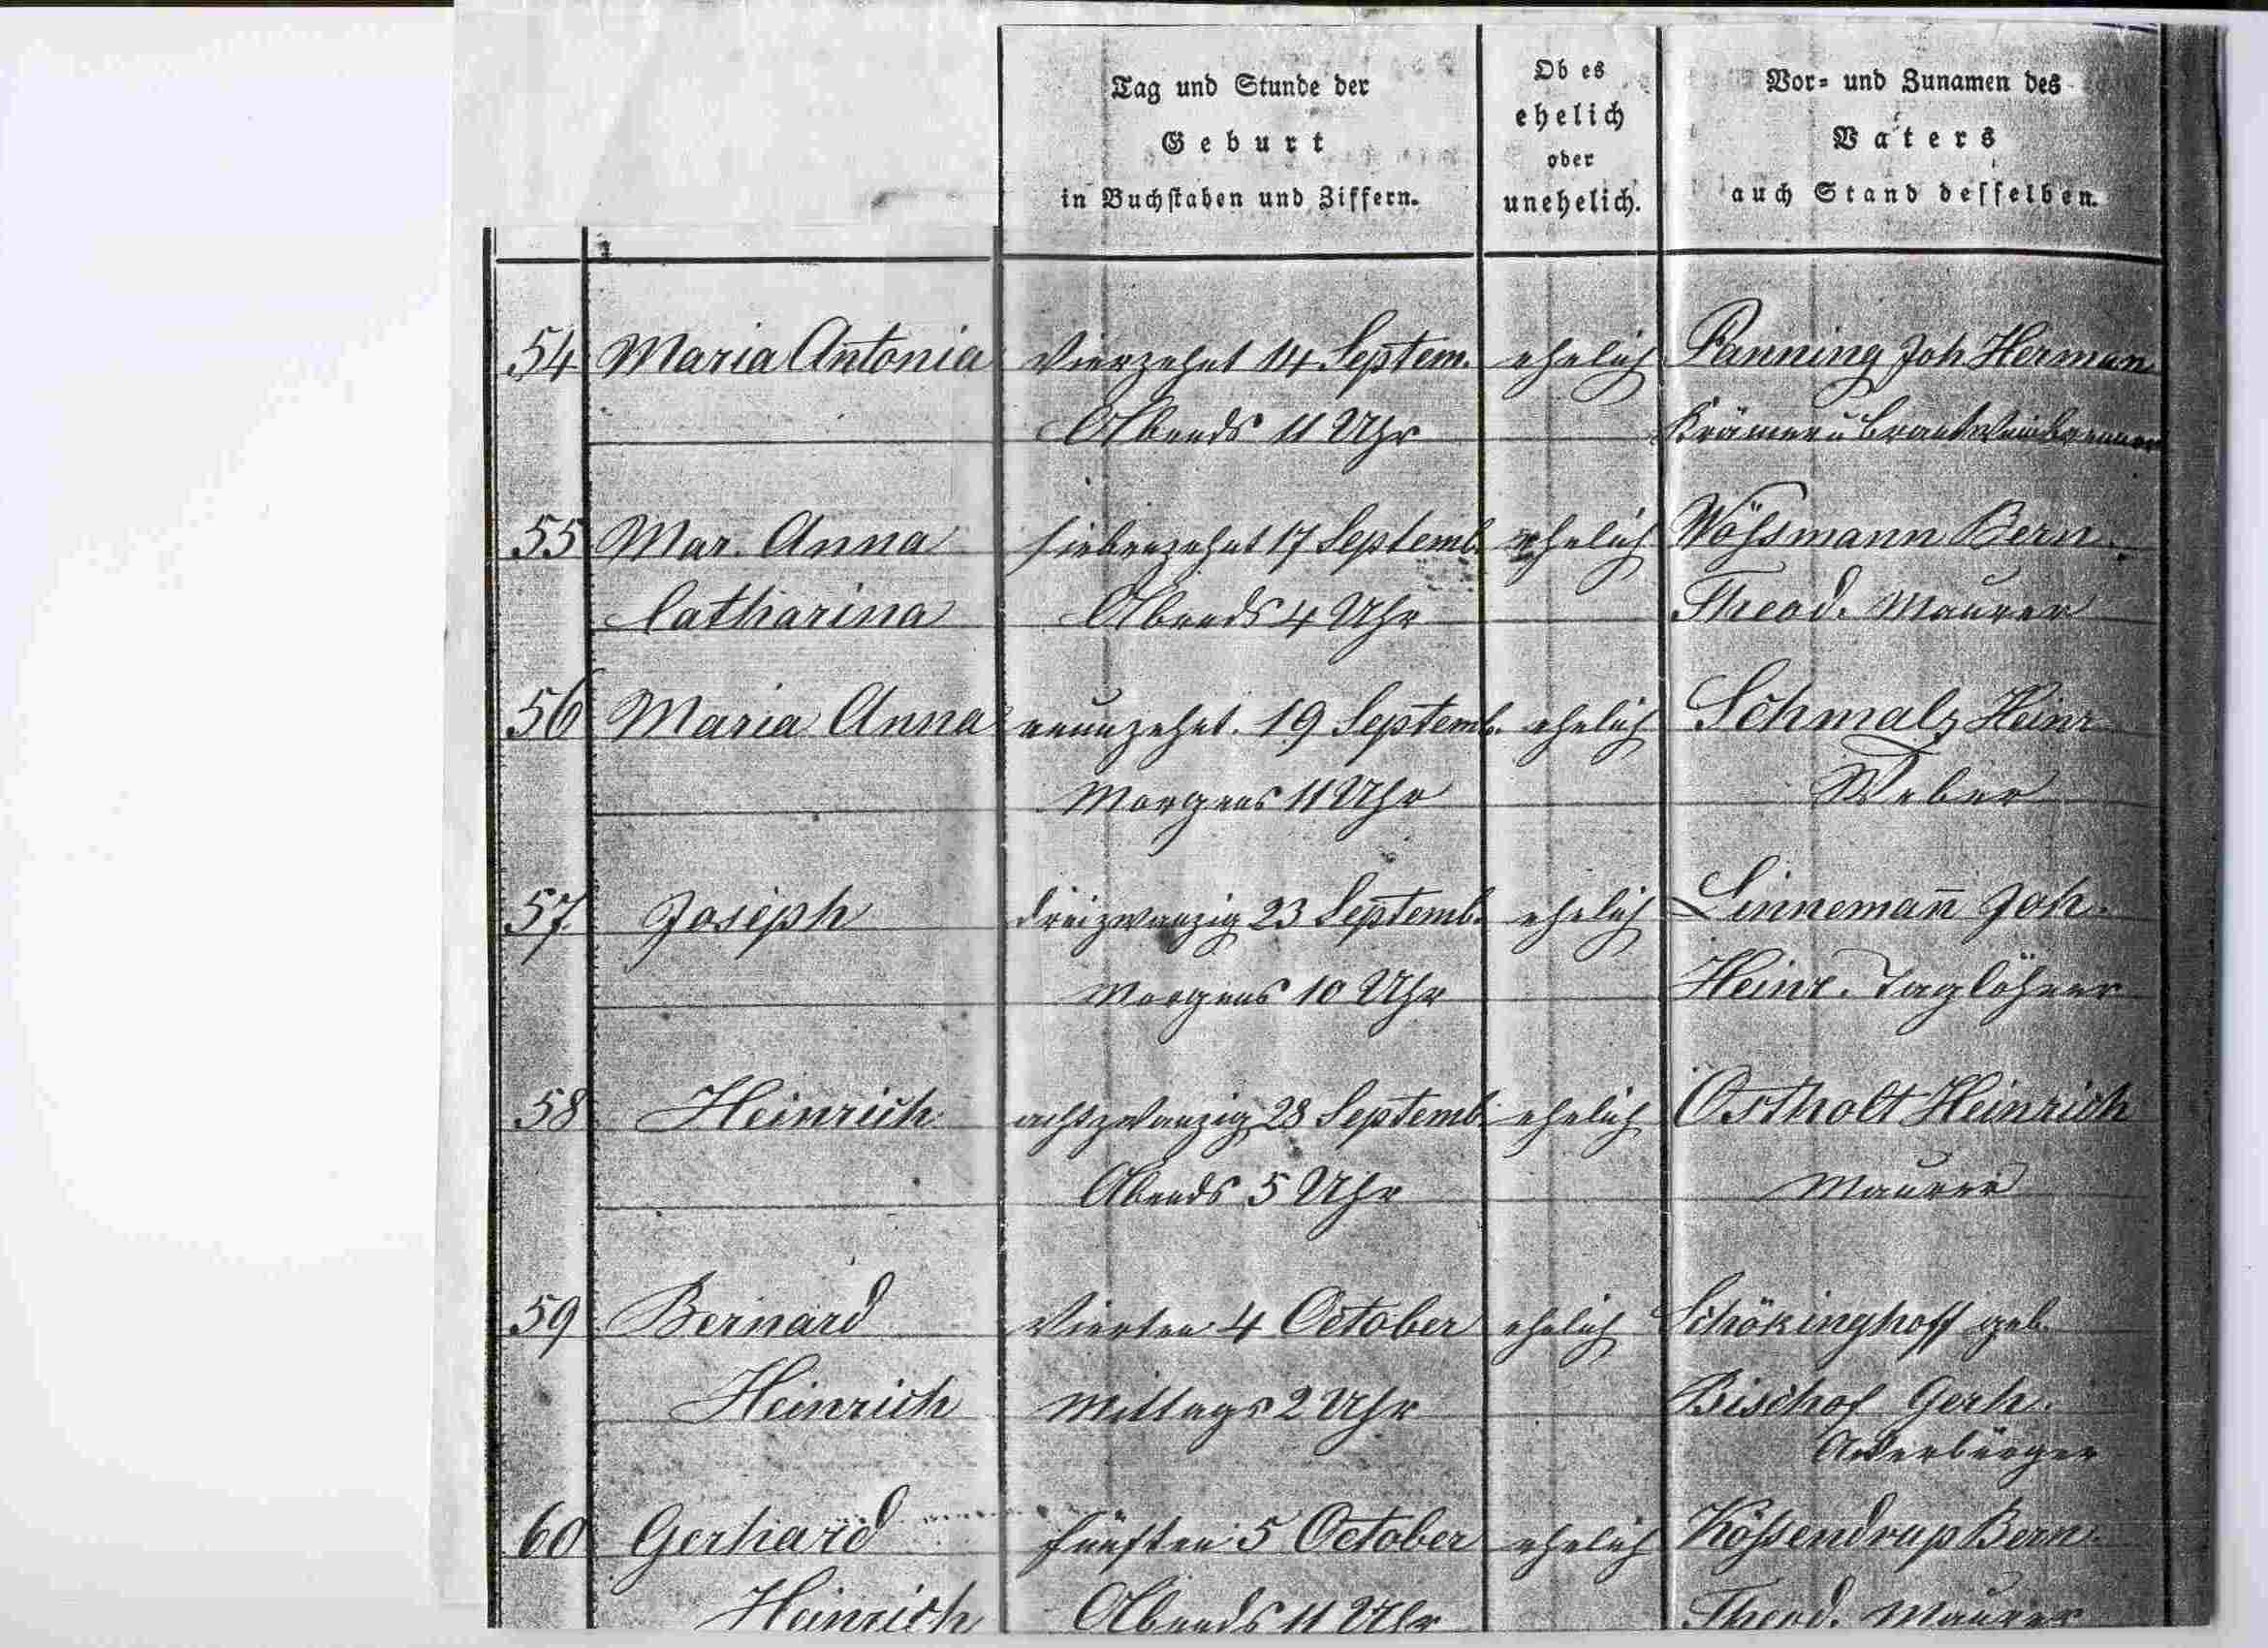 Tag und Stunde der
Geburt
in Buchstaben und Ziffern.
Ob es
ehelich
oder
unehelich.
Vor- und Zunamen des
Vaters
auch Stand desselben.
54 Maria Antonia vierzehnt 14 Septem. ehelich Panning Joh Herman
Abends 11 Uhr Krämer u Brantweinbrenner
55 Mar. Anna siebenzehnt 17 Septemb. ehelich Wößmann Bern.
Catharina Abends 4 Uhr Theod. Maurer
56 Maria Anna neunzehnt. 19 Septemb. ehelich Schmalz Heinr
Morgens 11 Uhr Weber
57. Joseph dreizwanzig 23 Septemb. ehelich Linneman̅ Joh.
Morgens 10 Uhr Heinr. Taglöhner
58 Heinrich achtzwanzig 28 Septemb. ehelich Ostholt Heinrich
Abends 5 Uhr Maurer
59 Bernard vierten 4 October ehelich Schökinghoff geb.
Heinrich Mittags 2 Uhr Bischof Gerh.
Ackerbürger
60 Gerhard fünften 5 October ehelich Kößendrup Bern.
Heinrich Abends 11 Uhr Theod. Maurer